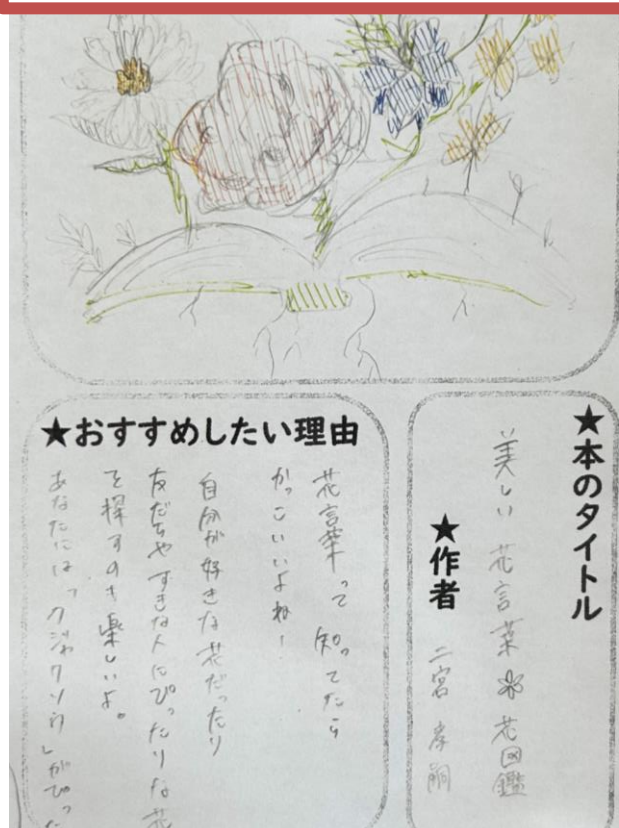 ★本のタイトル
美しい 花言葉 花図鑑
★作者
二宮 孝嗣
★おすすめしたい理由
花言葉って 知ってたら
かっこいいよね!
自分が好きな花だったり
友だちやすきな人にぴったりな花
を探すのも楽しいよ。
あなたには「クジャクソウ」がぴった